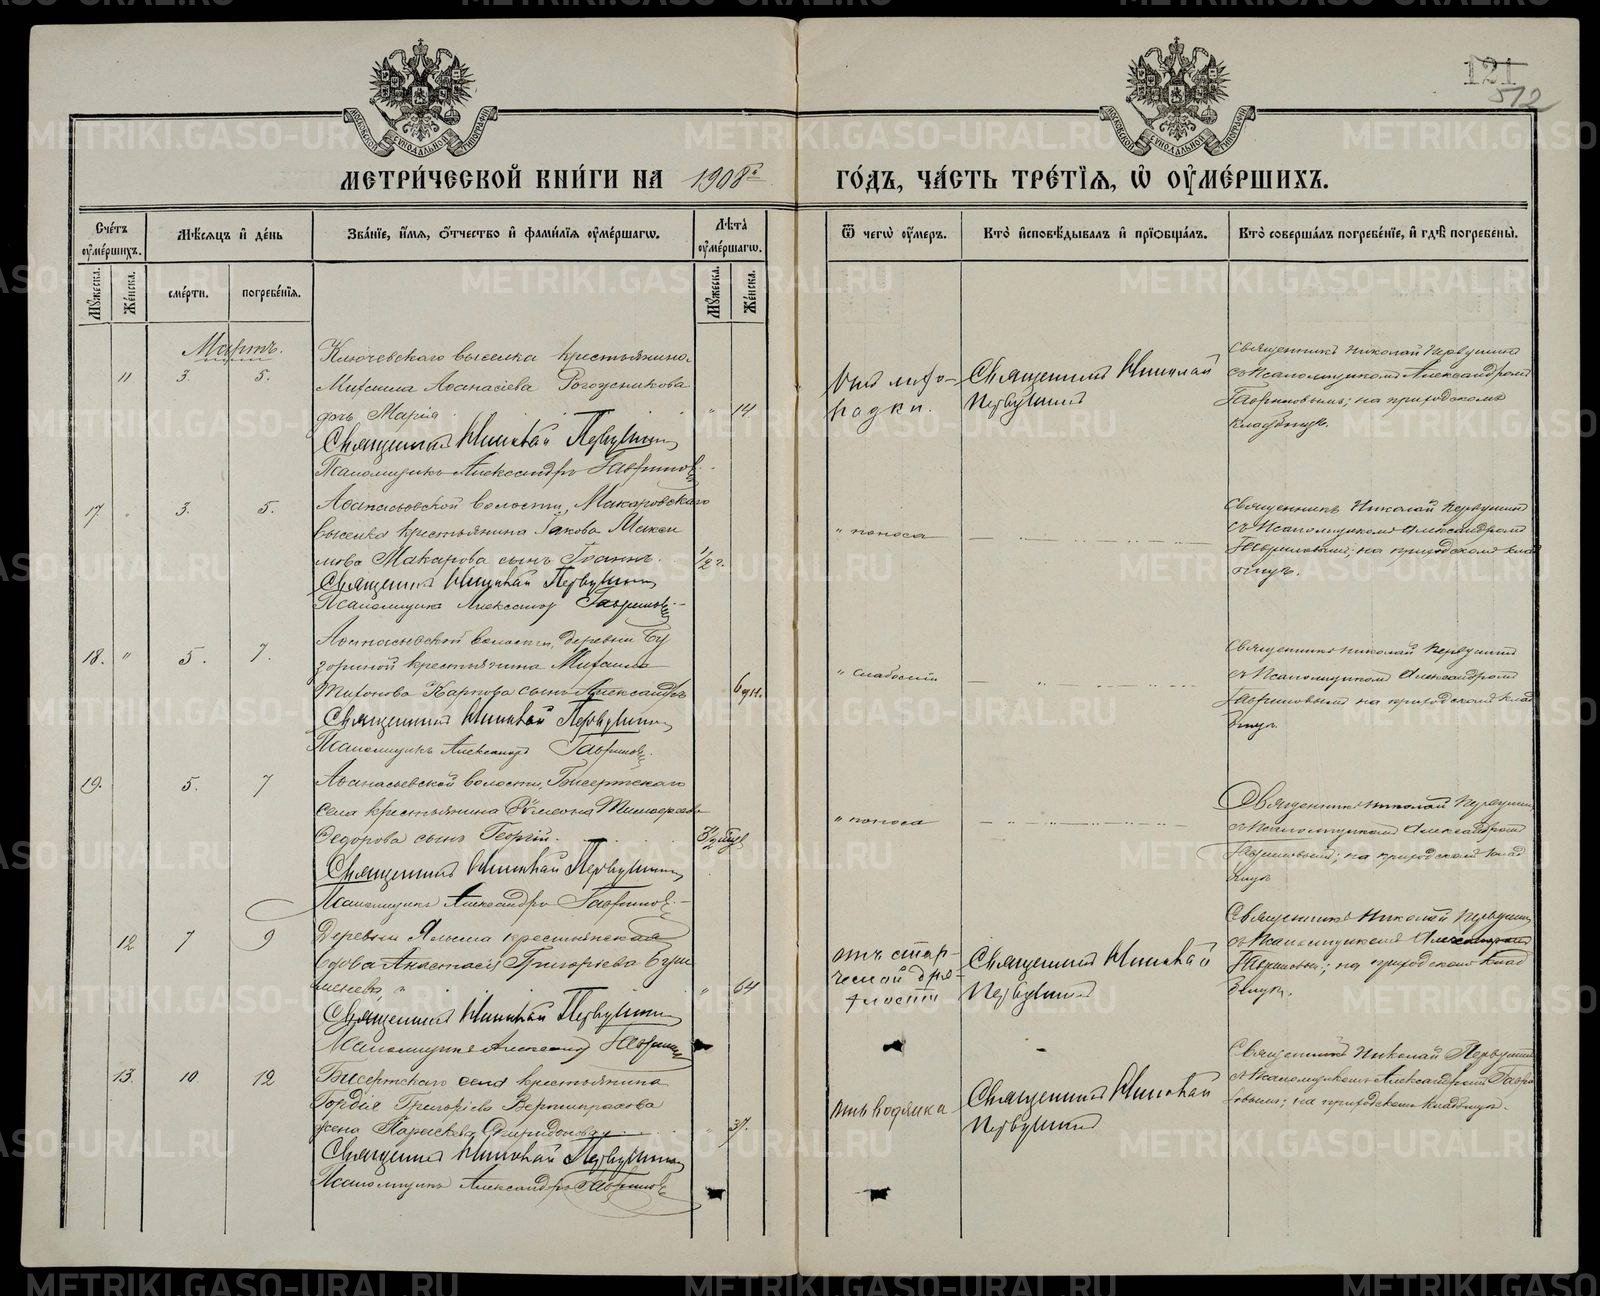 121
512
МЕТРИ́ЧЕСКОЙ КНИ́ГИ НА 1908й ГО́ДЪ, ЧА́СТЬ ТРЕ́ТІѦ, Ѡ ОУМЕ́РШИХЪ.
Сче́тъ оуме́ршихъ.
Му́жеска.
Же́нска.
Мѣ́сѧцъ и де́нь
сме́рти.
погребе́нїѧ.
Зва́нїе, и́мѧ, ѻ́тчество и фами́лїѧ оуме́ршагѡ.
Лѣта̀ оуме́ршагѡ.
Му́жеска.
Же́нска.
Ѿ чегѡ̀ оу́меръ.
Кто̀ и҆сповѣ́дывалъ и прїѡбща́лъ.
Кто̀ соверша́лъ погребе́нїе, и гдѣ̀ погребены̀.
Мартъ.
11 3. 5.
Ключевскаго выселка крестьянина
Михаила Аѳанасіева Рогозникова
дочь Марія.
" 14
Священникъ Николай Первушинъ
Псаломщикъ Александръ Гавриловъ
Священникъ Николай
Первушинъ
Священникъ Николай Первушинъ
съ Псаломщикомъ Александромъ
Гавриловымъ; на приходскомъ
кладбищѣ.
17. " 3. 5.
Аѳанасьевской волости, Макаровскаго
выселка крестьянина Іакова Макси
мова Макарова сынъ Іоаннъ.
1/2 г.
Священникъ Николай Первушинъ
Псаломщикъ Александръ Гавриловъ
" поноса
Священникъ Николай Первушинъ
съ Псаломщикомъ Александромъ
Гавриловымъ; на приходскомъ клад
бищѣ.
18. " 5. 7.
Аѳанасьевской волости, деревни
крестьянина Михаила
Тихонова Карпова сынъ Александръ
6 дн.
Священникъ Николай Первушинъ
Псаломщикъ Александръ Гавриловъ.
" слабости
Священникъ Николай Первушинъ
съ Псаломщикомъ Александромъ
Гавриловымъ на приходскомъ клад
бищѣ.
19. 5. 7
Аѳанасьевской волости, Бисертскаго
села крестьянина
Ѳедорова сынъ Георгій.
Священникъ Николай Первушинъ
Псаломщикъ Александръ Гавриловъ
" поноса
Священникъ Николай Первушинъ
съ Псаломщикомъ Александромъ
Гавриловымъ; на приходскомъ клад
бищѣ
12 7 9
Деревни крестьянская
вдова Анастасія Григорьева
" 64
Священникъ Николай Первушинъ
Псаломщикъ Александръ Гавриловъ
отъ стар-
ческой дря-
хлости
Священникъ Николай
Первушинъ
Священникъ Николай Первушинъ
съ Псаломщикомъ Александромъ
Гавриловымъ; на приходскомъ клад
бищѣ.
13. 10. 12
Бисертскаго села крестьянина
Гордія Григоріева
жена Параскева Спиридонова
" 37.
Священникъ Николай Первушинъ
Псаломщикъ Александръ Гавриловъ
отъ водянка
Священникъ Николай
Первушинъ
Священникъ Николай Первушинъ
съ Псаломщикомъ Александромъ Гаври
ловымъ; на приходскомъ кладбищѣ.
METRIKI.GASO-URAL.RU